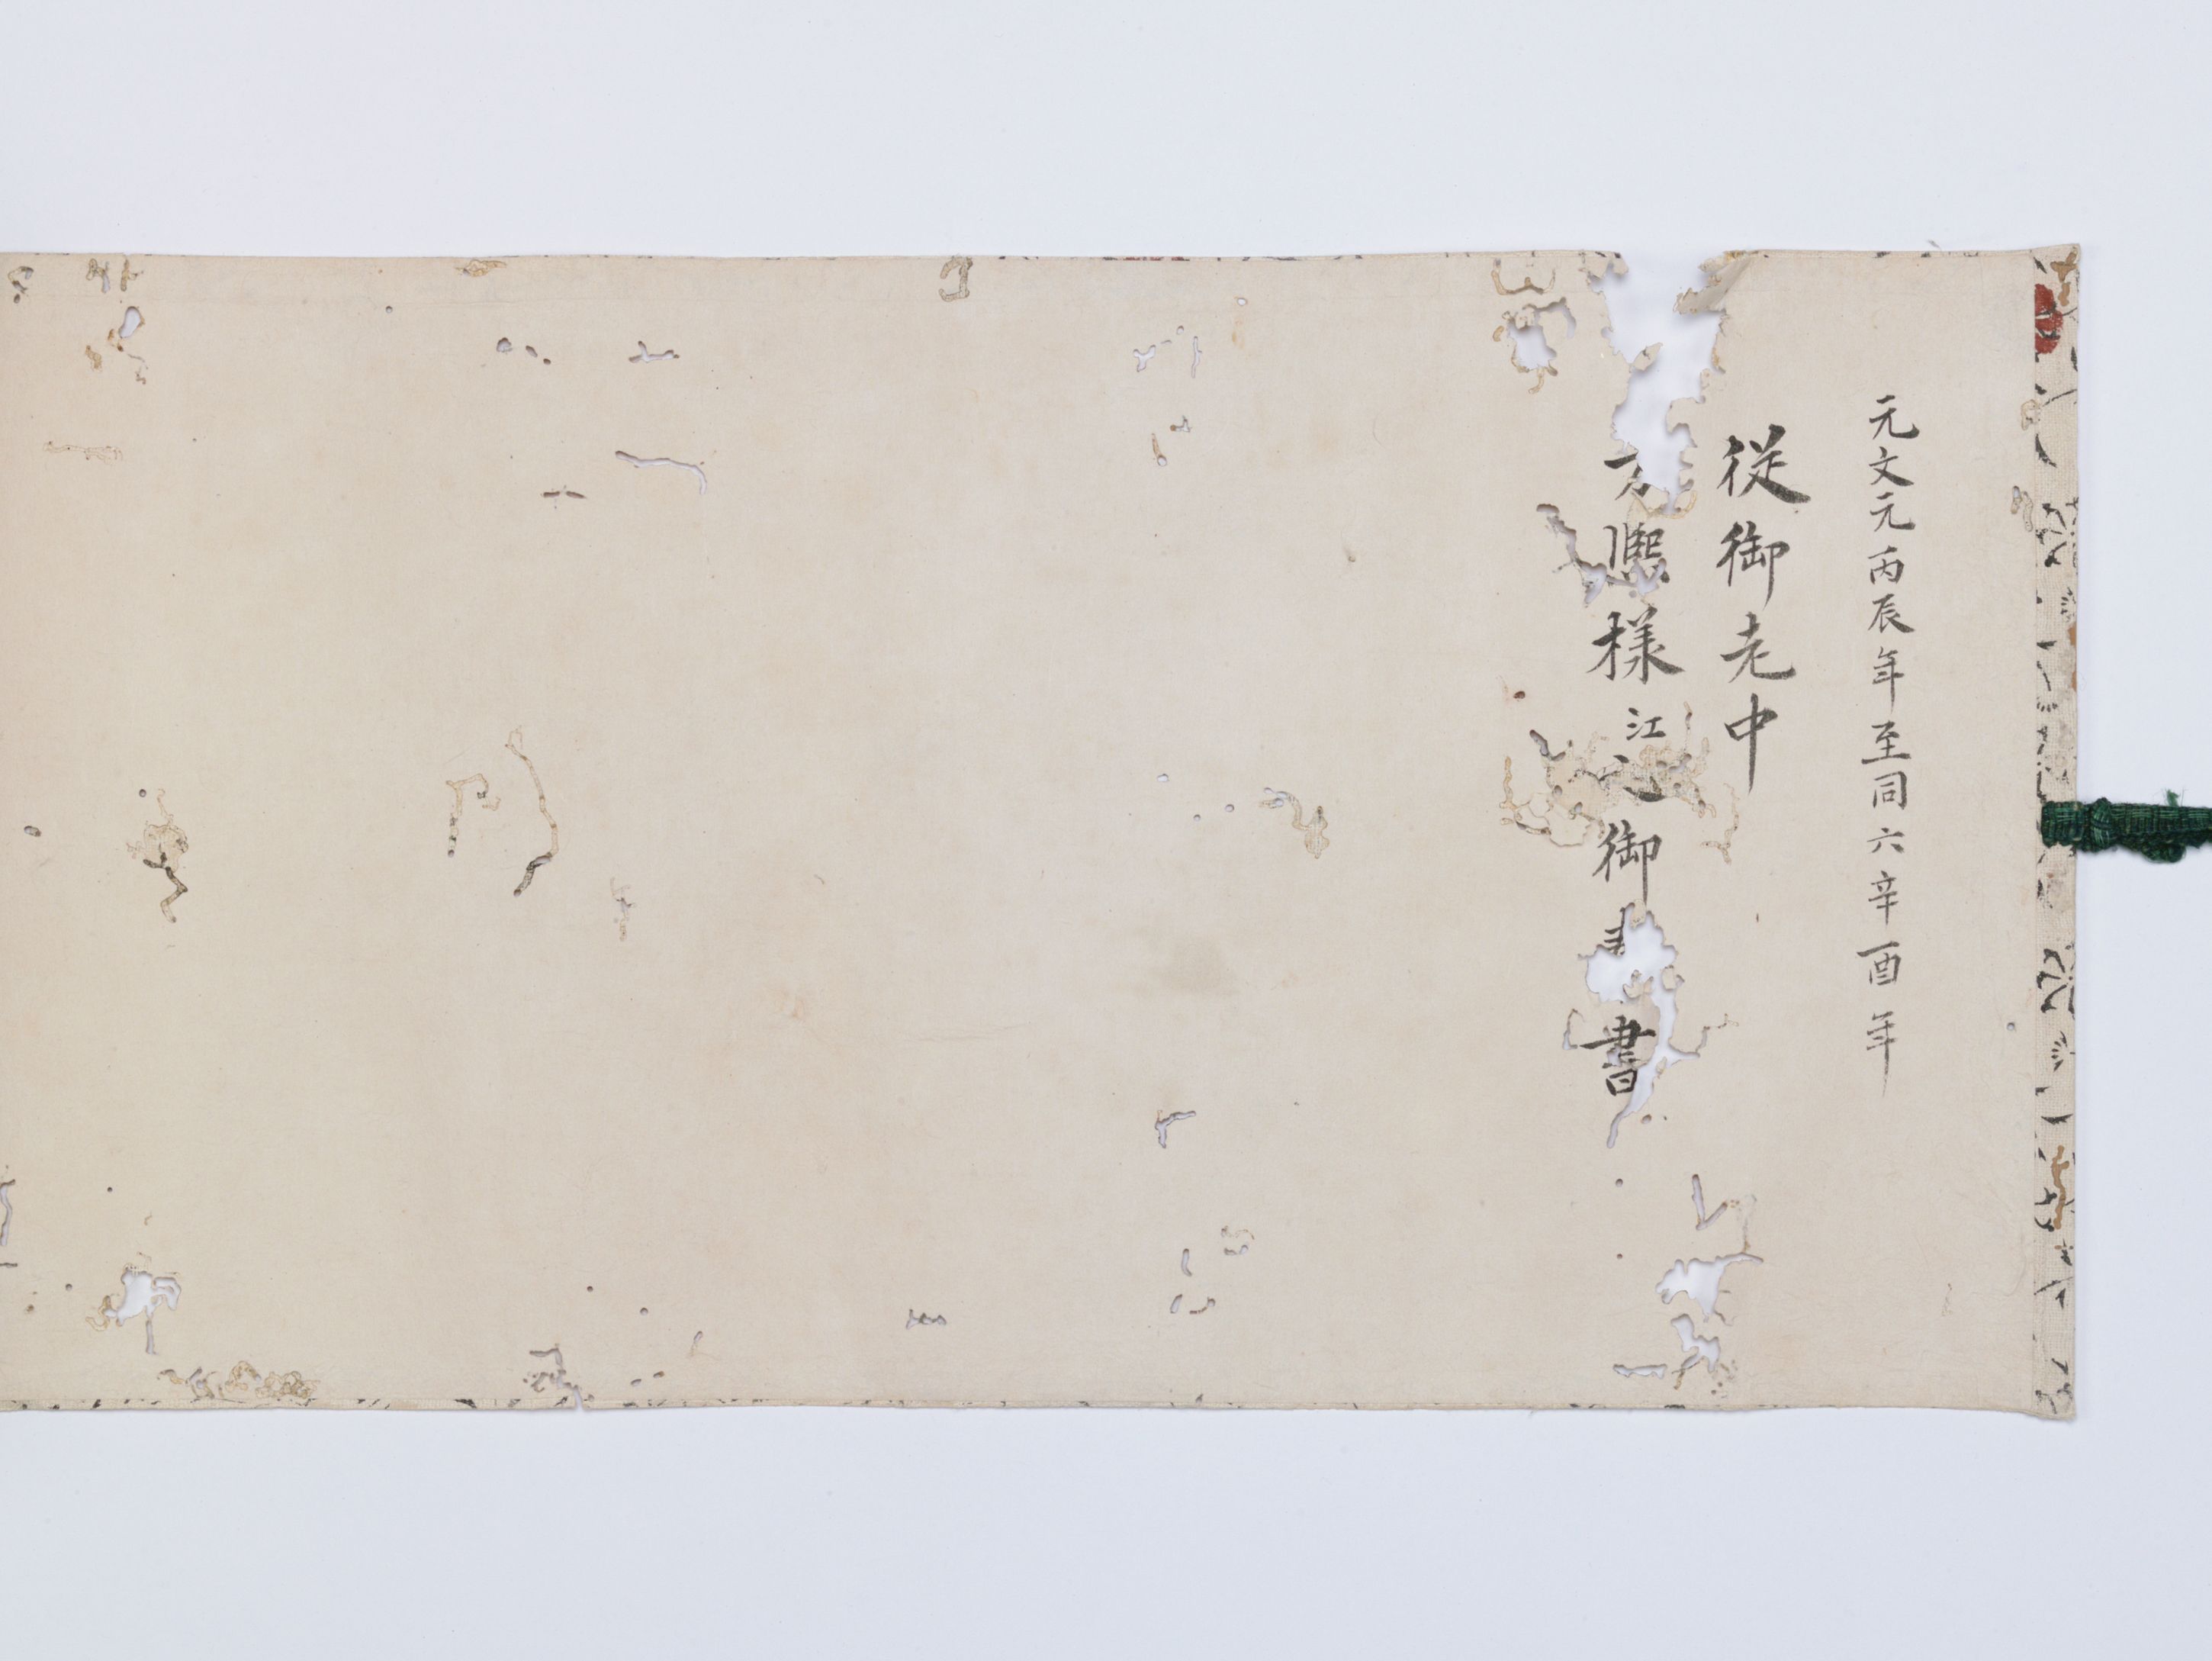 元文元丙辰年至同六辛酉年
従御老中
方熈様江之御書